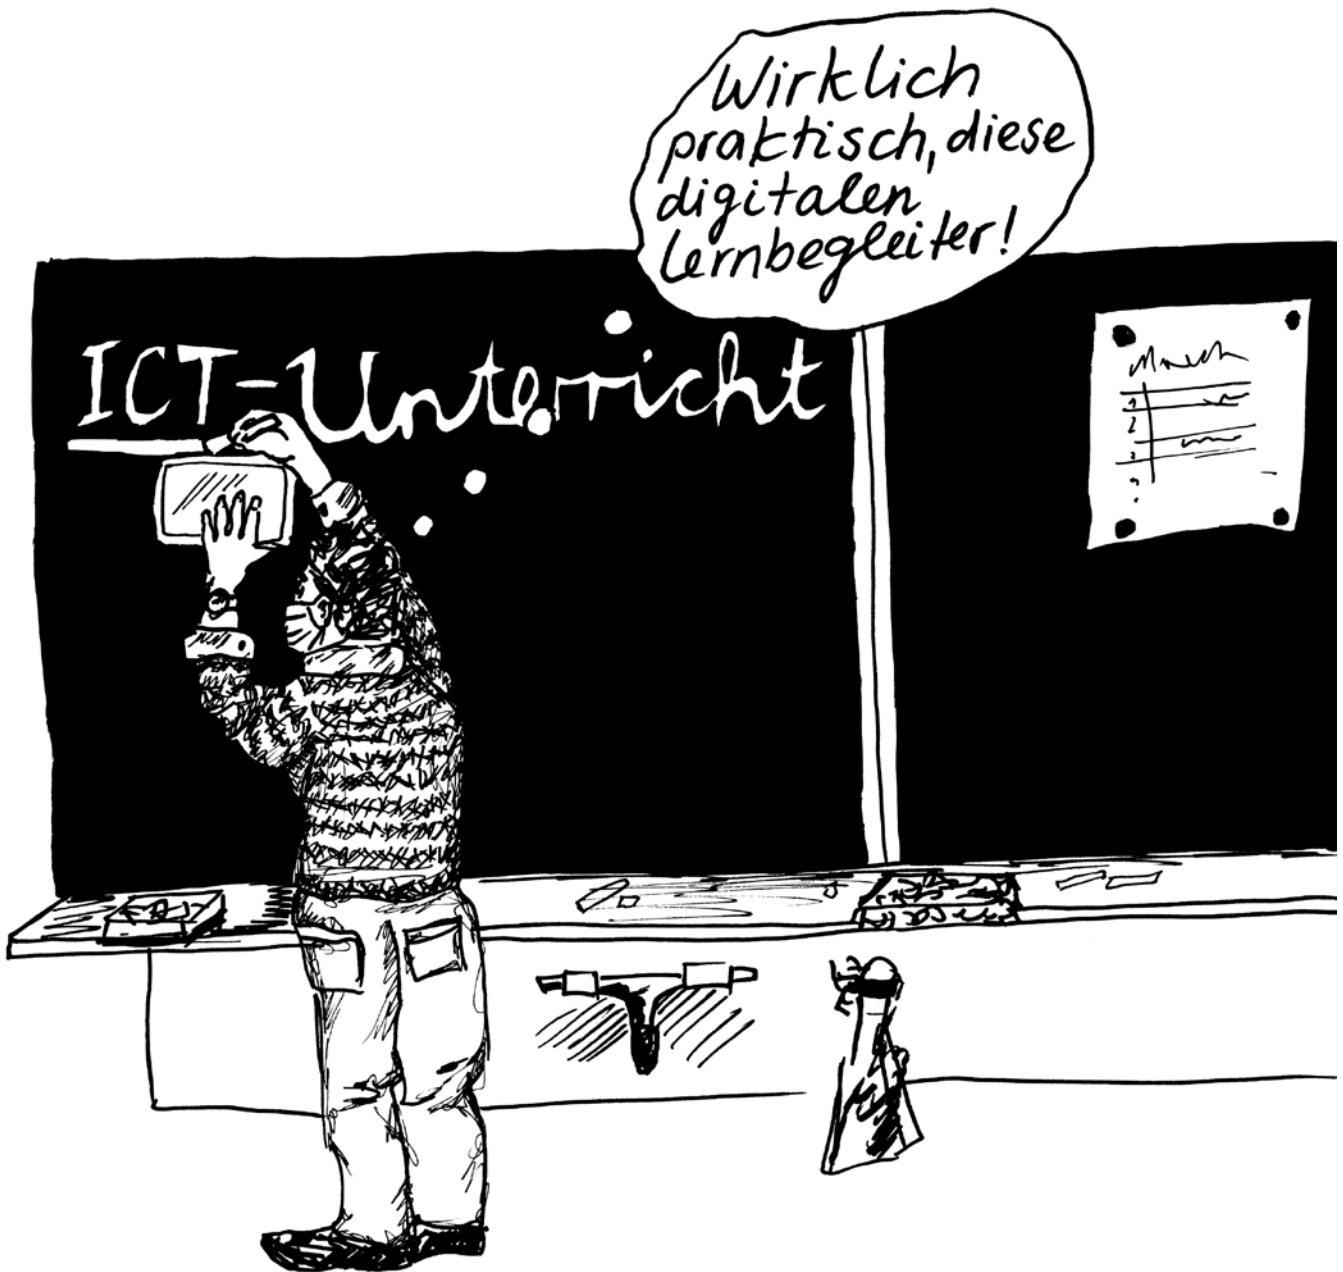 Wirklich
praktisch, diese
digitalen
Lernbegleiter!
ICT-Unterricht